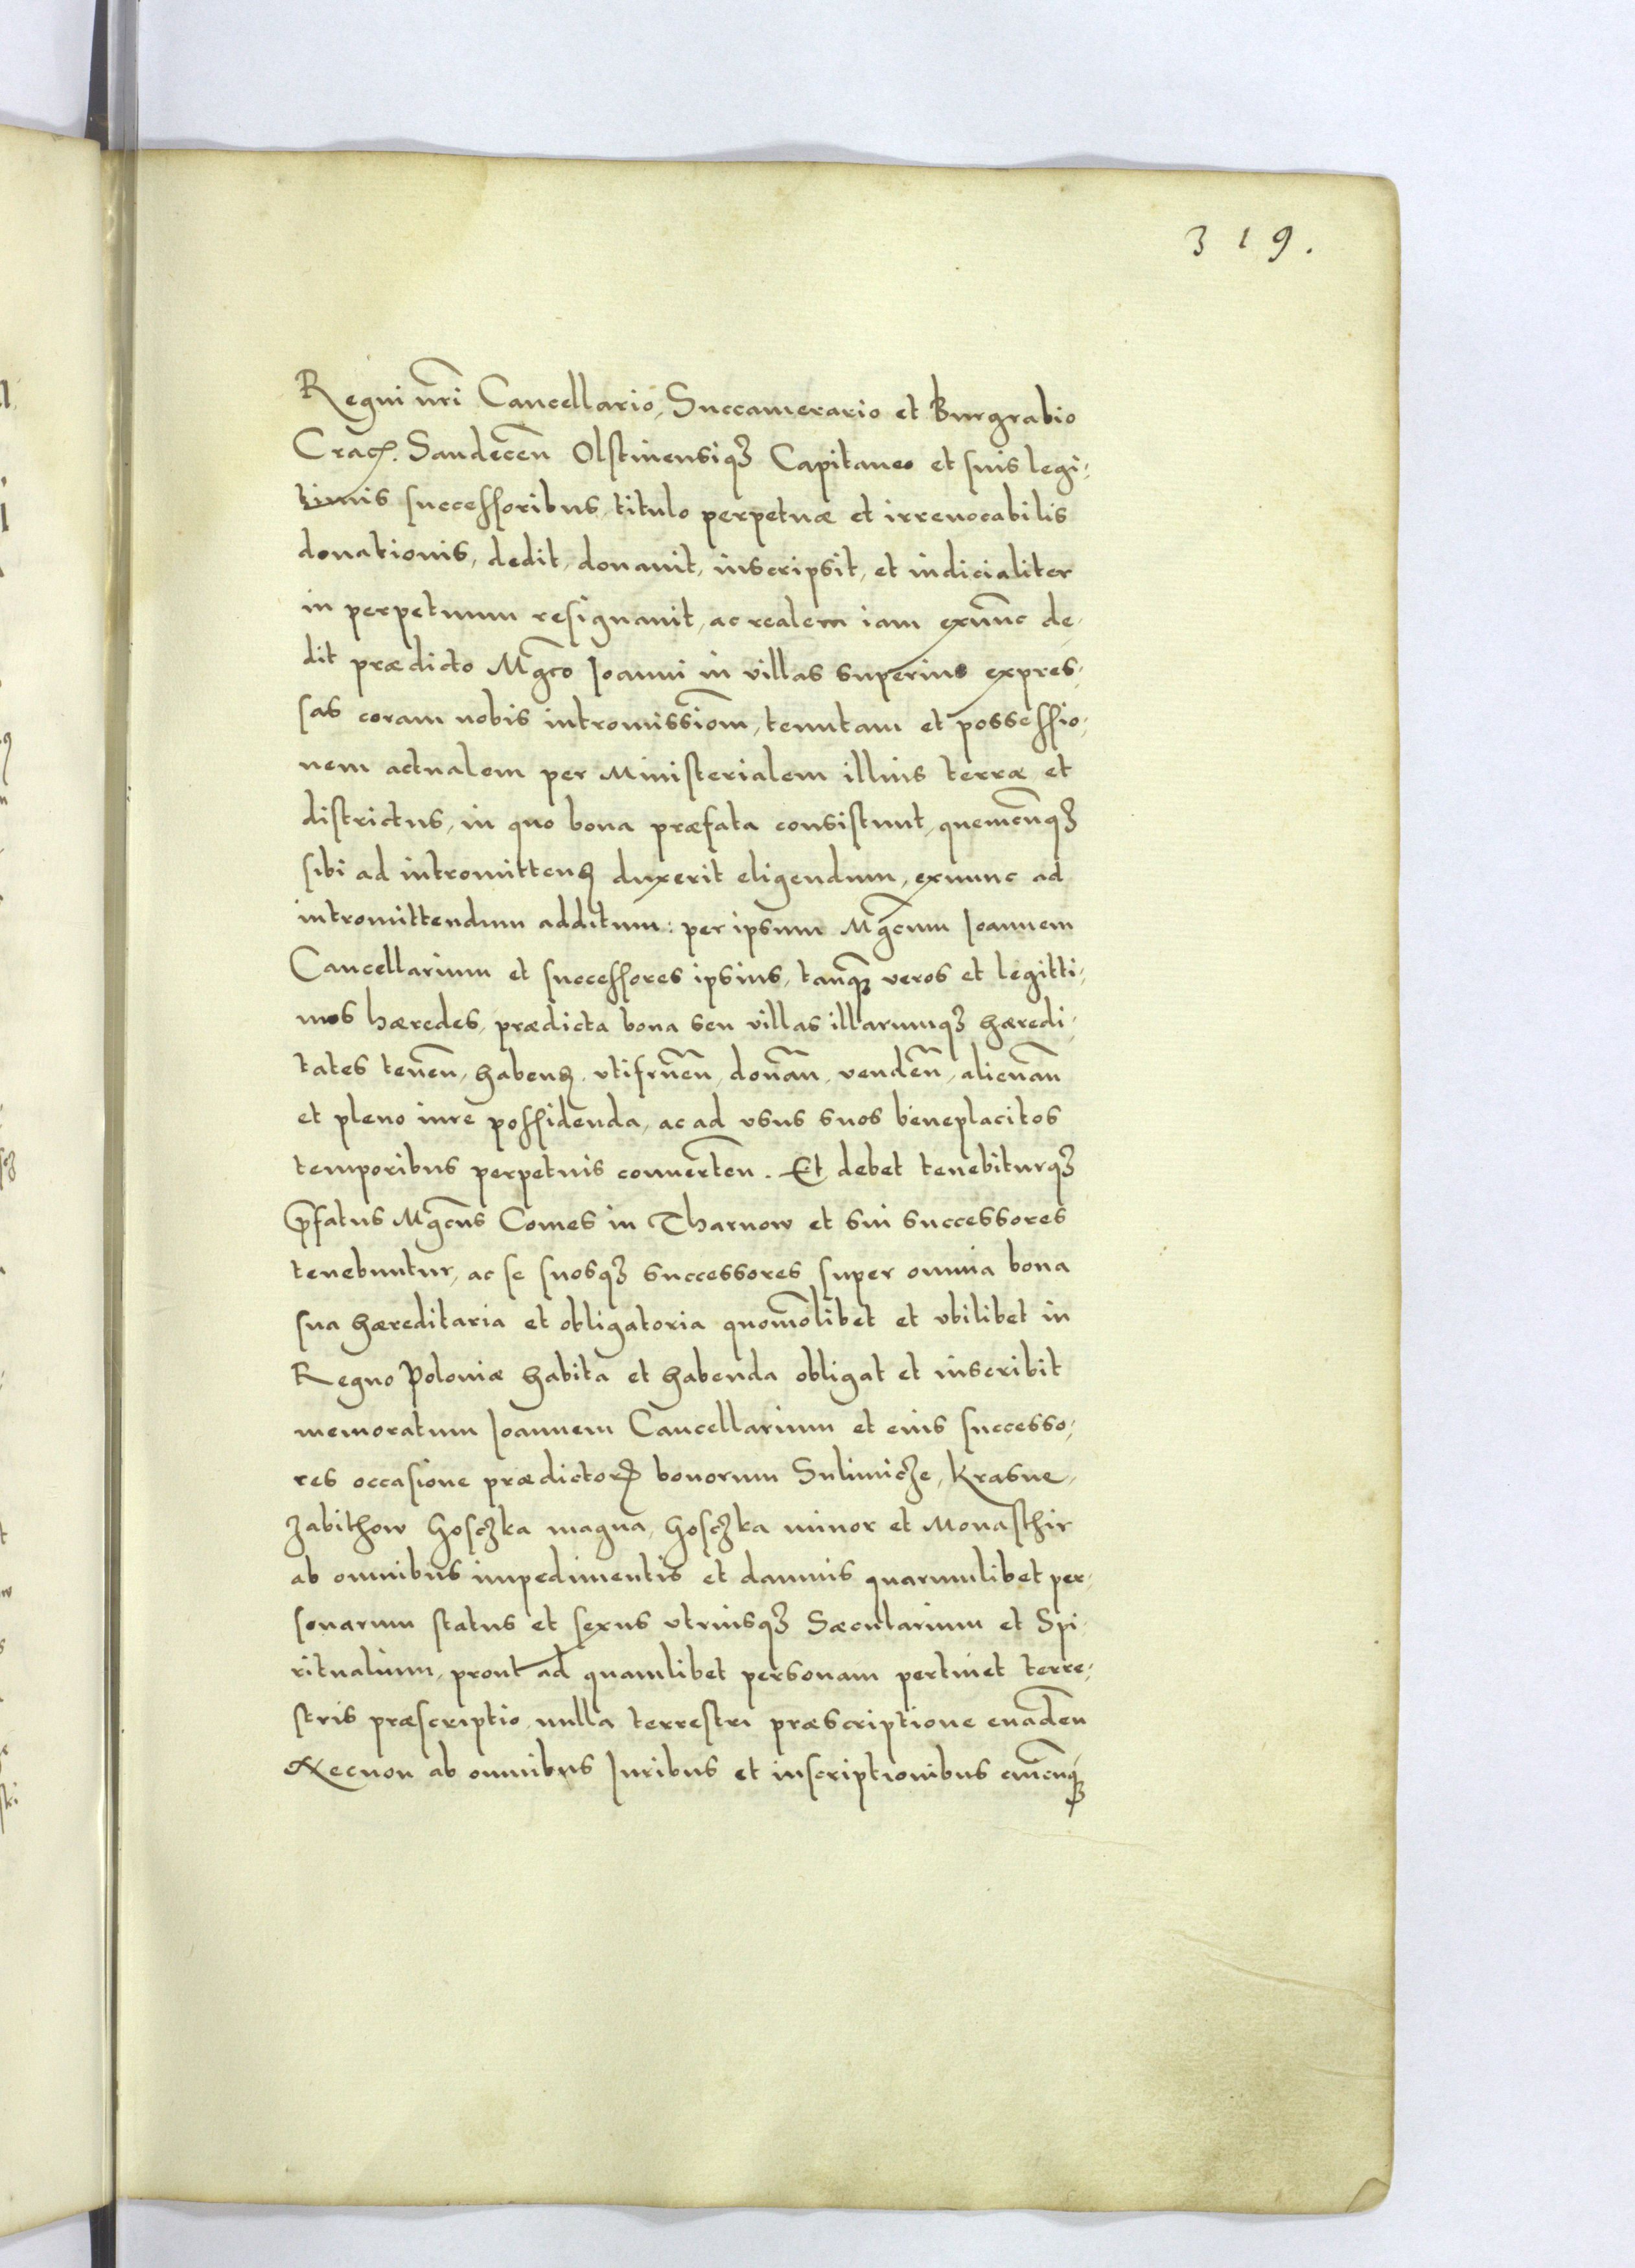 319.
Regni nr̃i Cancellario, Succamerario et Burgrabio
Crac. Sandecen̄ Olstinensiqꝫ Capitaneo et suis legi-
timis successoribus titulo perpetuæ et irreuocabilis
donationis, dedit, donauit, inscripsit, et iudicialiter
in perpetuum resignauit, ac realem iam exnūnc de-
dit prædicto Mgc̄o Joanni in villas superius expres-
sas coram nobis intromissiōm, tenutam et possessio-
nem actualem per Ministerialem illius terræ et
districtus, in quo bona præfata consistunt, quemcūnqꝫ
sibi ad intromitten̄ duxerit eligendum, exnunc ad
intromittendum additum: per ipsum Mgc̄um Joannem
Cancellarium et successores ipsius, tanq̄ꝫ veros et legitti-
mos hæredes, prædicta bona seu villas illarumqꝫ hæredi-
tates tenen̄, haben̄, vtifruen̄, donan̄, venden̄, alienan̄
et pleno iure possidenda, ac ad vsus suos beneplacitos
temporibus perpetuis conuerten̄. Et debet tenebiturqꝫ
p̄fatus Mgc̄us Comes in Tharnow et sui successores
tenebuntur, ac se suosqꝫ successores super omnia bona
sua hæreditaria et obligatoria quomōlibet et vbilibet in
Regno Poloniæ habita et habenda obligat et inscribit
memoratum Joannem Cancellarium et eius successo-
res occasione prædictorꝝ bonorum Sulimicze, Krasne,
Zabithow Hosczka magna, Hosczka minor et Monasthir
ab omnibus impedimentis et damnis quarumlibet per-
sonarum status et sexus vtriusqꝫ Sæcularium et Spi-
ritualium, prout ad quamlibet personam pertinet terre-
stris præscriptio nulla terrestri præscriptione euaden̄
Necnon ab omnibus Juribus et inscriptionibus cuiūcūqꝫ